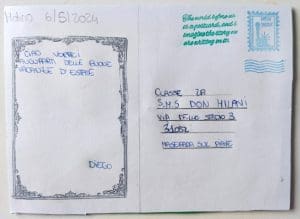 Milano 6/5/2024
CIAO VORREI
AUGURARTI DELLE BUONE
VACANZE D'ESTATE
DIEGO
The world is famous
as a postcard, and i
imagine the story we
are writing on it.
CLASSE 2A
S.M.S DON MILANI
VIA DELLO STADIO 3
31052
MASERADA SUL PIAVE